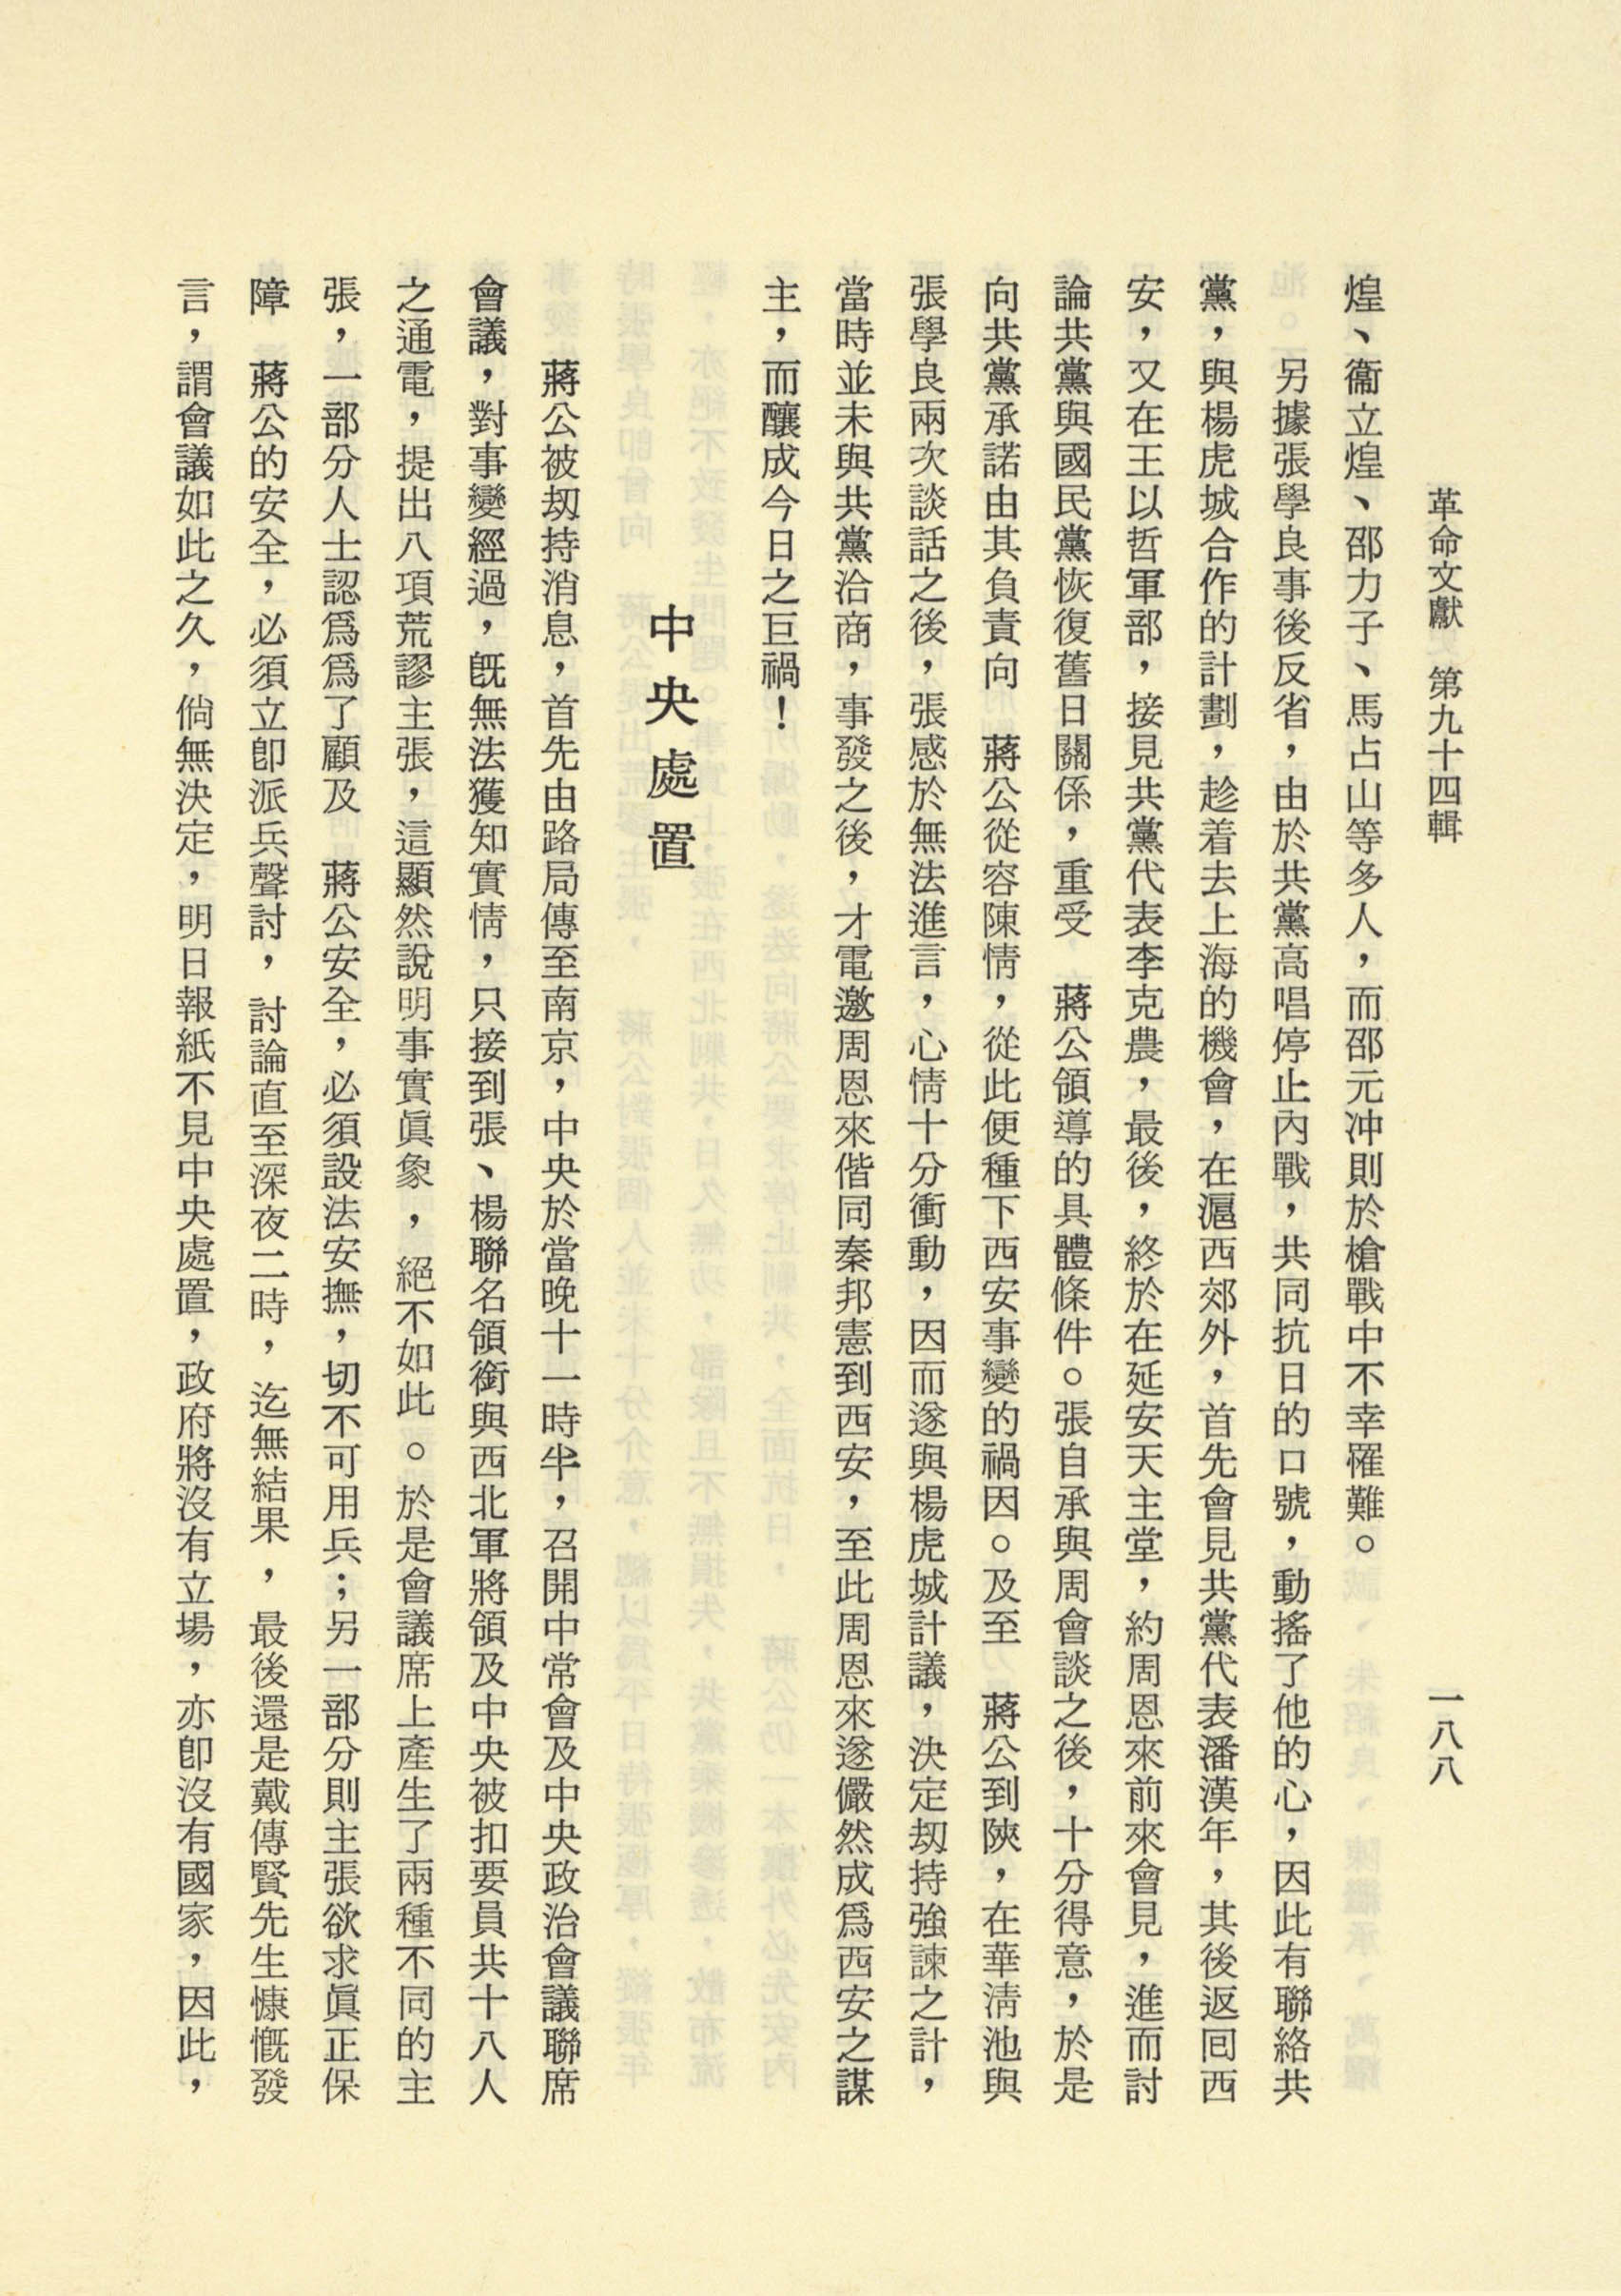 革命文獻　第九十四輯　一八八
煌、衞立煌、邵力子、馬占山等多人，而邵元冲則於槍戰中不幸罹難。
另據張學良事後反省，由於共黨高唱停止內戰，共同抗日的口號，動搖了他的心，因此有聯絡共
黨，與楊虎城合作的計劃，趁着去上海的機會，在滬西郊外，首先會見共黨代表潘漢年，其後返回西
安，又在王以哲軍部，接見共黨代表李克農，最後，終於在延安天主堂，約周恩來前來會見，進而討
論共黨與國民黨恢復舊日關係，重受　蔣公領導的具體條件。張自承與周會談之後，十分得意，於是
向共黨承諾由其負責向　蔣公從容陳情，從此便種下西安事變的禍因。及至　蔣公到陝，在華淸池與
張學良兩次談話之後，張感於無法進言，心情十分衝動，因而遂與楊虎城計議，決定刼持強諫之計，
當時並未與共黨洽商，事發之後，才電邀周恩來偕同秦邦憲到西安，至此周恩來遂儼然成爲西安之謀
主，而釀成今日之巨禍！
中央處置
蔣公被刼持消息，首先由路局傳至南京，中央於當晚十一時半，召開中常會及中央政治會議聯席
會議，對事變經過，旣無法獲知實情，只接到張、楊聯名領銜與西北軍將領及中央被扣要員共十八人
之通電，提出八項荒謬主張，這顯然說明事實眞象，絕不如此。於是會議席上產生了兩種不同的主
張，一部分人士認爲爲了顧及　蔣公安全，必須設法安撫，切不可用兵；另一部分則主張欲求眞正保
障　蔣公的安全，必須立卽派兵聲討，討論直至深夜二時，迄無結果，最後還是戴傳賢先生慷慨發
言，謂會議如此之久，倘無決定，明日報紙不見中央處置，政府將沒有立場，亦卽沒有國家，因此，